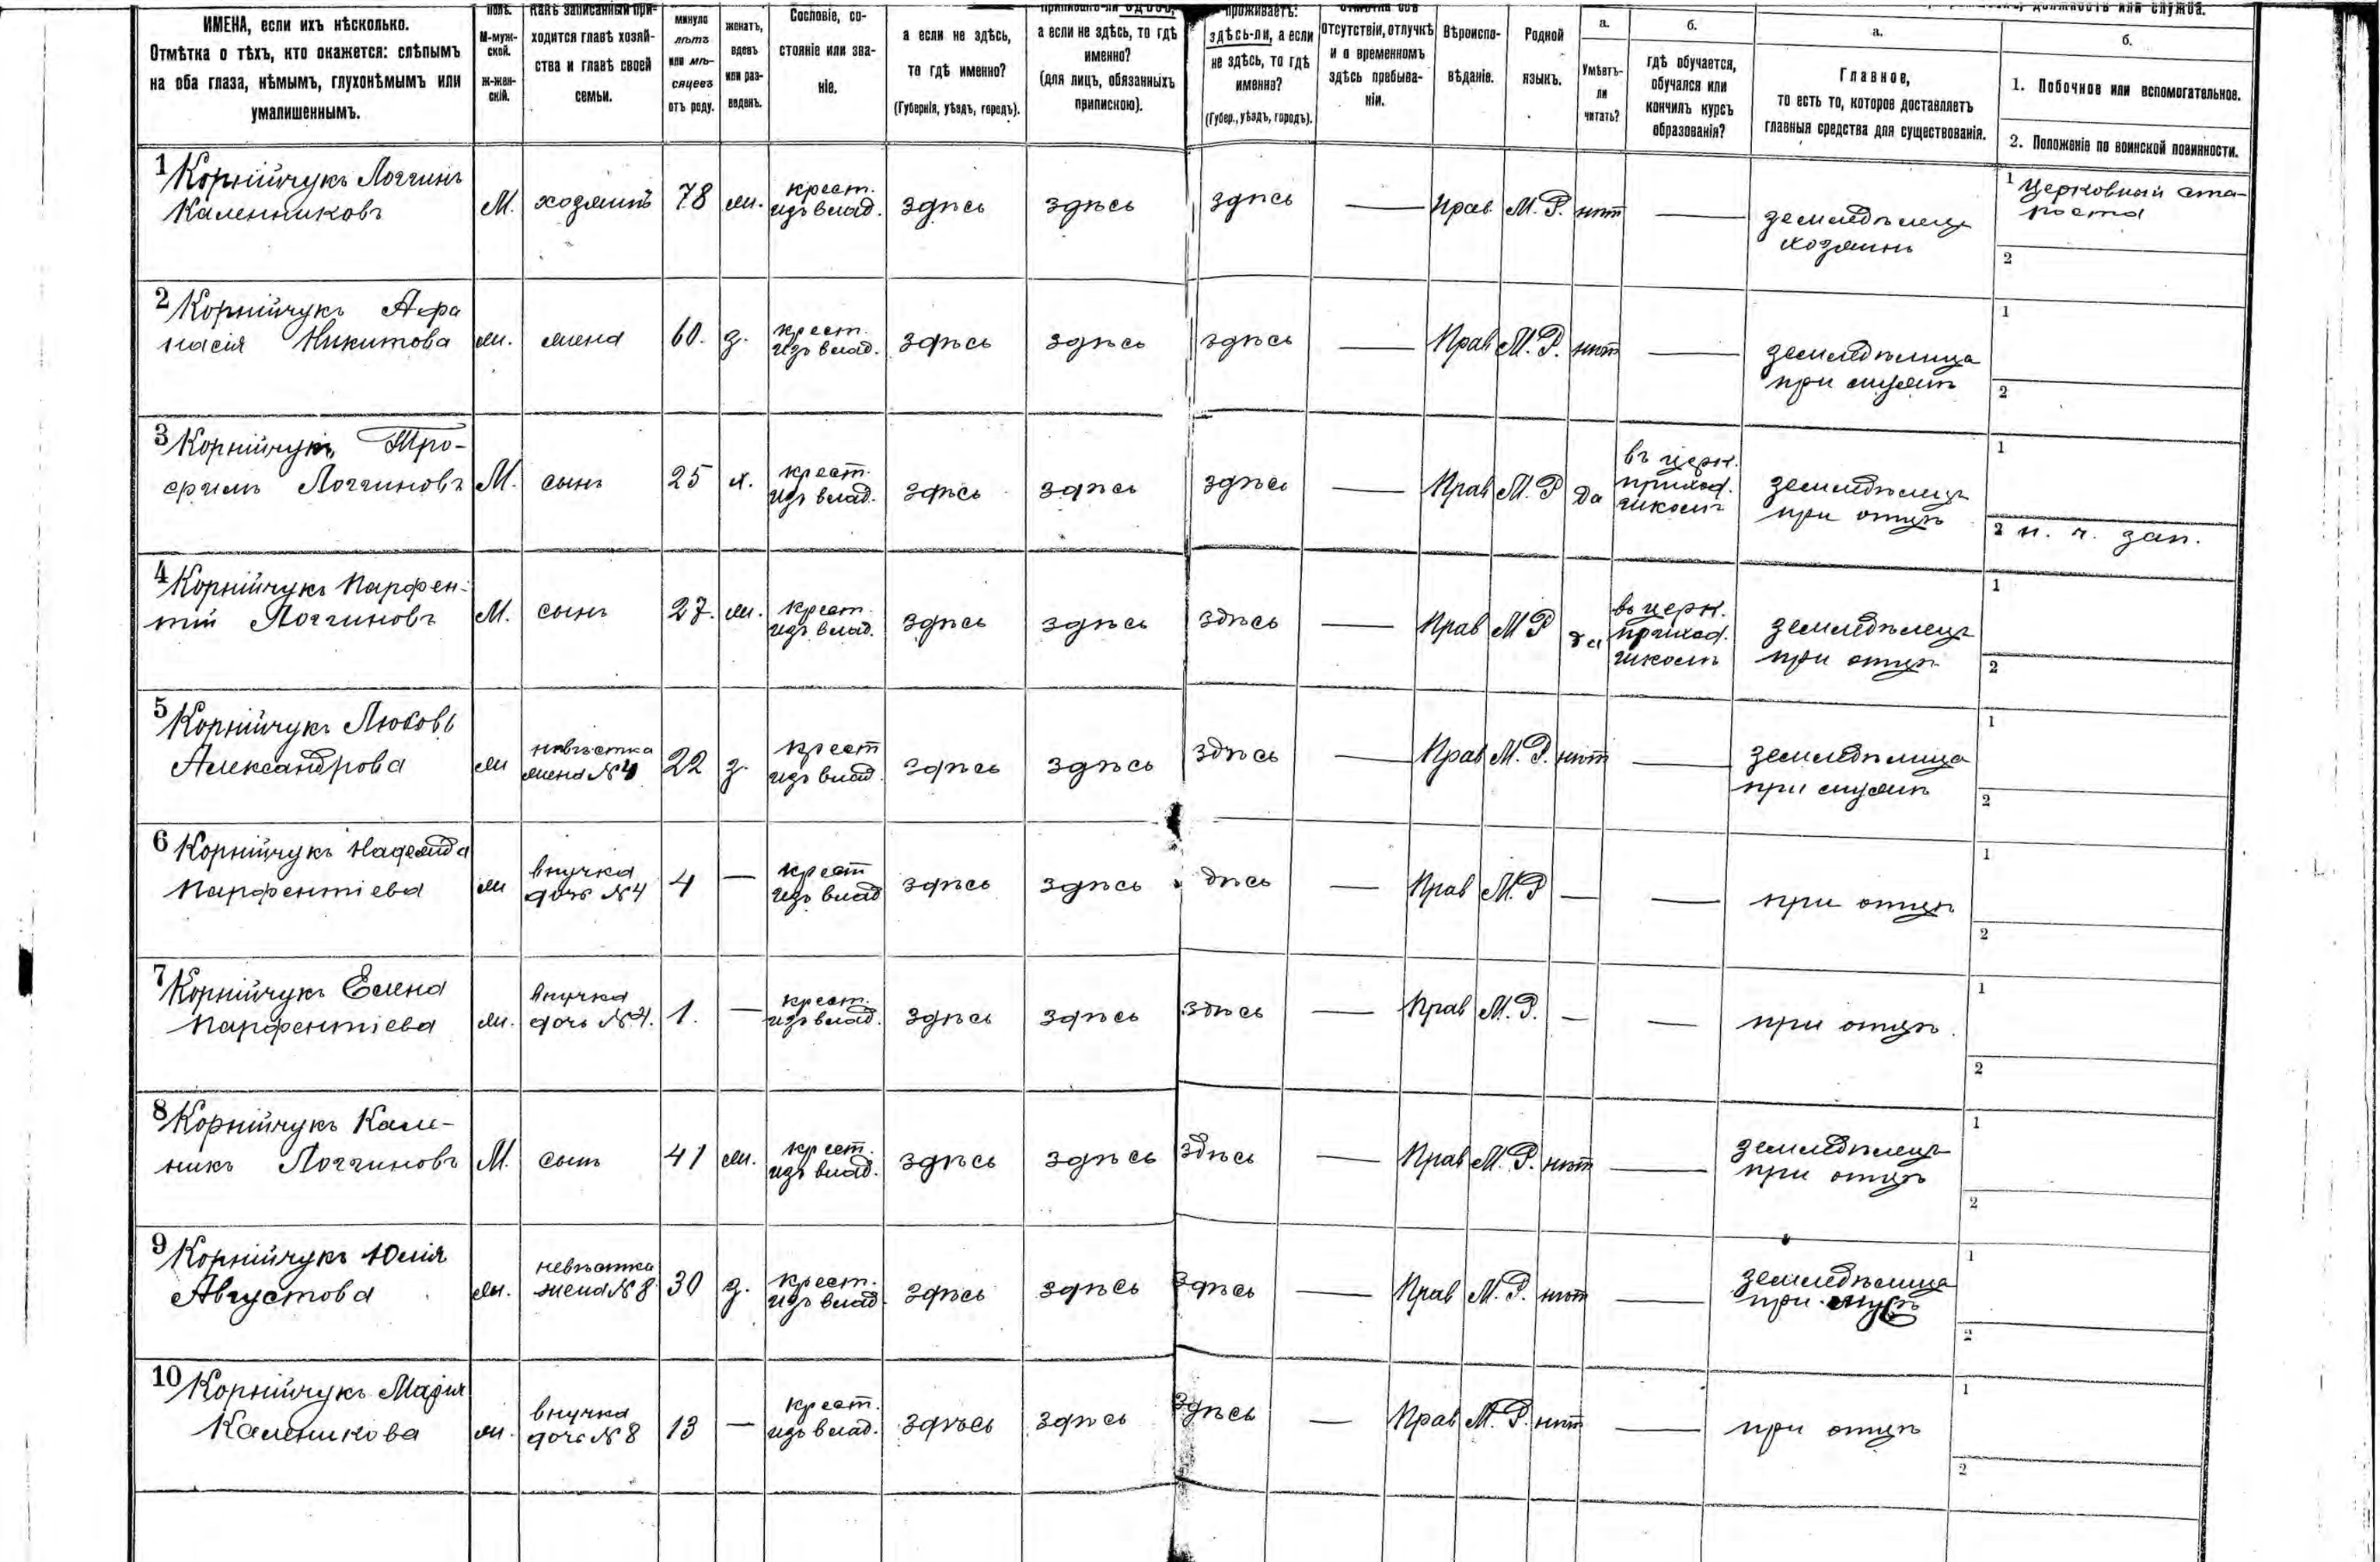 ИМЕНА, если ихъ нѣсколько.
Отмѣтка о тѣхъ, кто окажется: слѣпымъ
на оба глаза, нѣмымъ, глухонѣмымъ или
умалишеннымъ.
М-муж-
ской.
Ж-жен-
скій.
какъ записанный при-
ходится главѣ хозяй-
ства и главѣ своей
семьи.
минуло
лѣтъ
или мѣ-
сяцевъ
отъ роду.
женатъ,
вдовъ
или раз-
веденъ.
Сословіе, со-
стояніе или зва-
ніе.
а если не здѣсь,
то гдѣ именно?
(Губернія, уѣздъ, городъ).
а если не здѣсь, то гдѣ
именно?
(для лицъ, обязанныхъ
припискою).
проживаетъ:
здѣсь-ли, а если
не здѣсь, то гдѣ
именно?
(Губер., уѣздъ, городъ).
отсутствіи, отлучкѣ
и о временномъ
здѣсь пребыва-
ніи.
Вѣроиспо-
вѣданіе.
Родной
языкъ.
а.
Умѣетъ-
ли
читать?
б.
гдѣ обучается,
обучался или
кончилъ курсъ
образованія?
должность или служба.
а.
Главное,
то есть то, которое доставляетъ
главныя средства для существованія.
б.
1. Побочное или вспомогательное.
2. Положеніе по воинской повинности.
1 Корнійчукъ Логгинъ
Каленниковъ
М. хозяинъ 78 ж. крест. изъ влад. здѣсь здѣсь здѣсь — Прав. М. Р. нѣтъ — земледѣлецъ
хозяинъ
1 Церковный ста-
роста
2
2 Корнійчукъ Афа
насія Никитова
ж. жена 60. з. крест. изъ влад. здѣсь здѣсь здѣсь — Прав М. Р. нѣтъ — земледѣлица
при мужѣ
1
2
3 Корнійчукъ Тро-
фимъ Логгиновъ
М. сынъ 25 х. крест. изъ влад. здѣсь здѣсь здѣсь — Прав М. Р да въ церк.
приход.
школѣ
земледѣлецъ
при отцѣ
1
2 н. ч. зап.
4 Корнійчукъ Парфен-
тій Логгиновъ
М. сынъ 27. ж. крест. изъ влад. здѣсь здѣсь здѣсь — Прав М Р да въ церк.
приход.
школѣ
земледѣлецъ
при отцѣ
1
2
5 Корнійчукъ Любовь
Александрова
ж невѣстка
жена №4 22 з. крест изъ влад. здѣсь здѣсь здѣсь — Прав М. Р. нѣтъ — земледѣлица
при мужѣ
1
2
6 Корнійчукъ Надежда
Парфентіева
ж внучка
дочь №4 4 — крест изъ влад здѣсь здѣсь дѣсь — Прав М. Р — — при отцѣ
1
2
7 Корнійчукъ Елена
Парфентіева
ж. внучка
дочь №4. 1. — крест. изъ влад. здѣсь здѣсь здѣсь — Прав М. Р. — — при отцѣ.
1
2
8 Корнійчукъ Кале-
никъ Логгиновъ
М. сынъ 41 ж. крест. изъ влад. здѣсь здѣсь здѣсь — Прав М. Р. нѣтъ — земледѣлецъ
при отцѣ
1
2
9 Корнійчукъ Юлія
Августова
ж. невѣстка
жена №8 30 з. крест. изъ влад. здѣсь здѣсь здѣсь — Прав М. Р. нѣтъ — земледѣлица
при мужѣ
1
2
10 Корнійчукъ Марія
Каленикова
ж. внучка
дочь №8 13 — крест. изъ влад. здѣсь здѣсь здѣсь — Прав М. Р. нѣтъ — при отцѣ
1
2